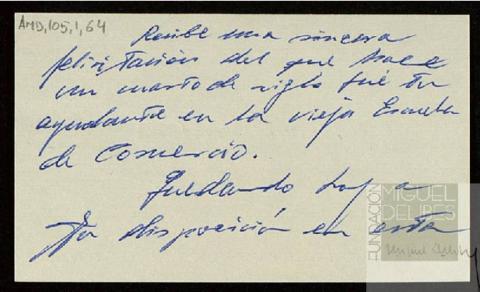 AMD,105,1,64
Recibe una sincera
felicitación del que hace
un cuarto de siglo fué tu
ayudante en la vieja Escuela
de Comercio.
Quedando
tu disposición en esta
FUNDACIÓN
MIGUEL
DELIBES